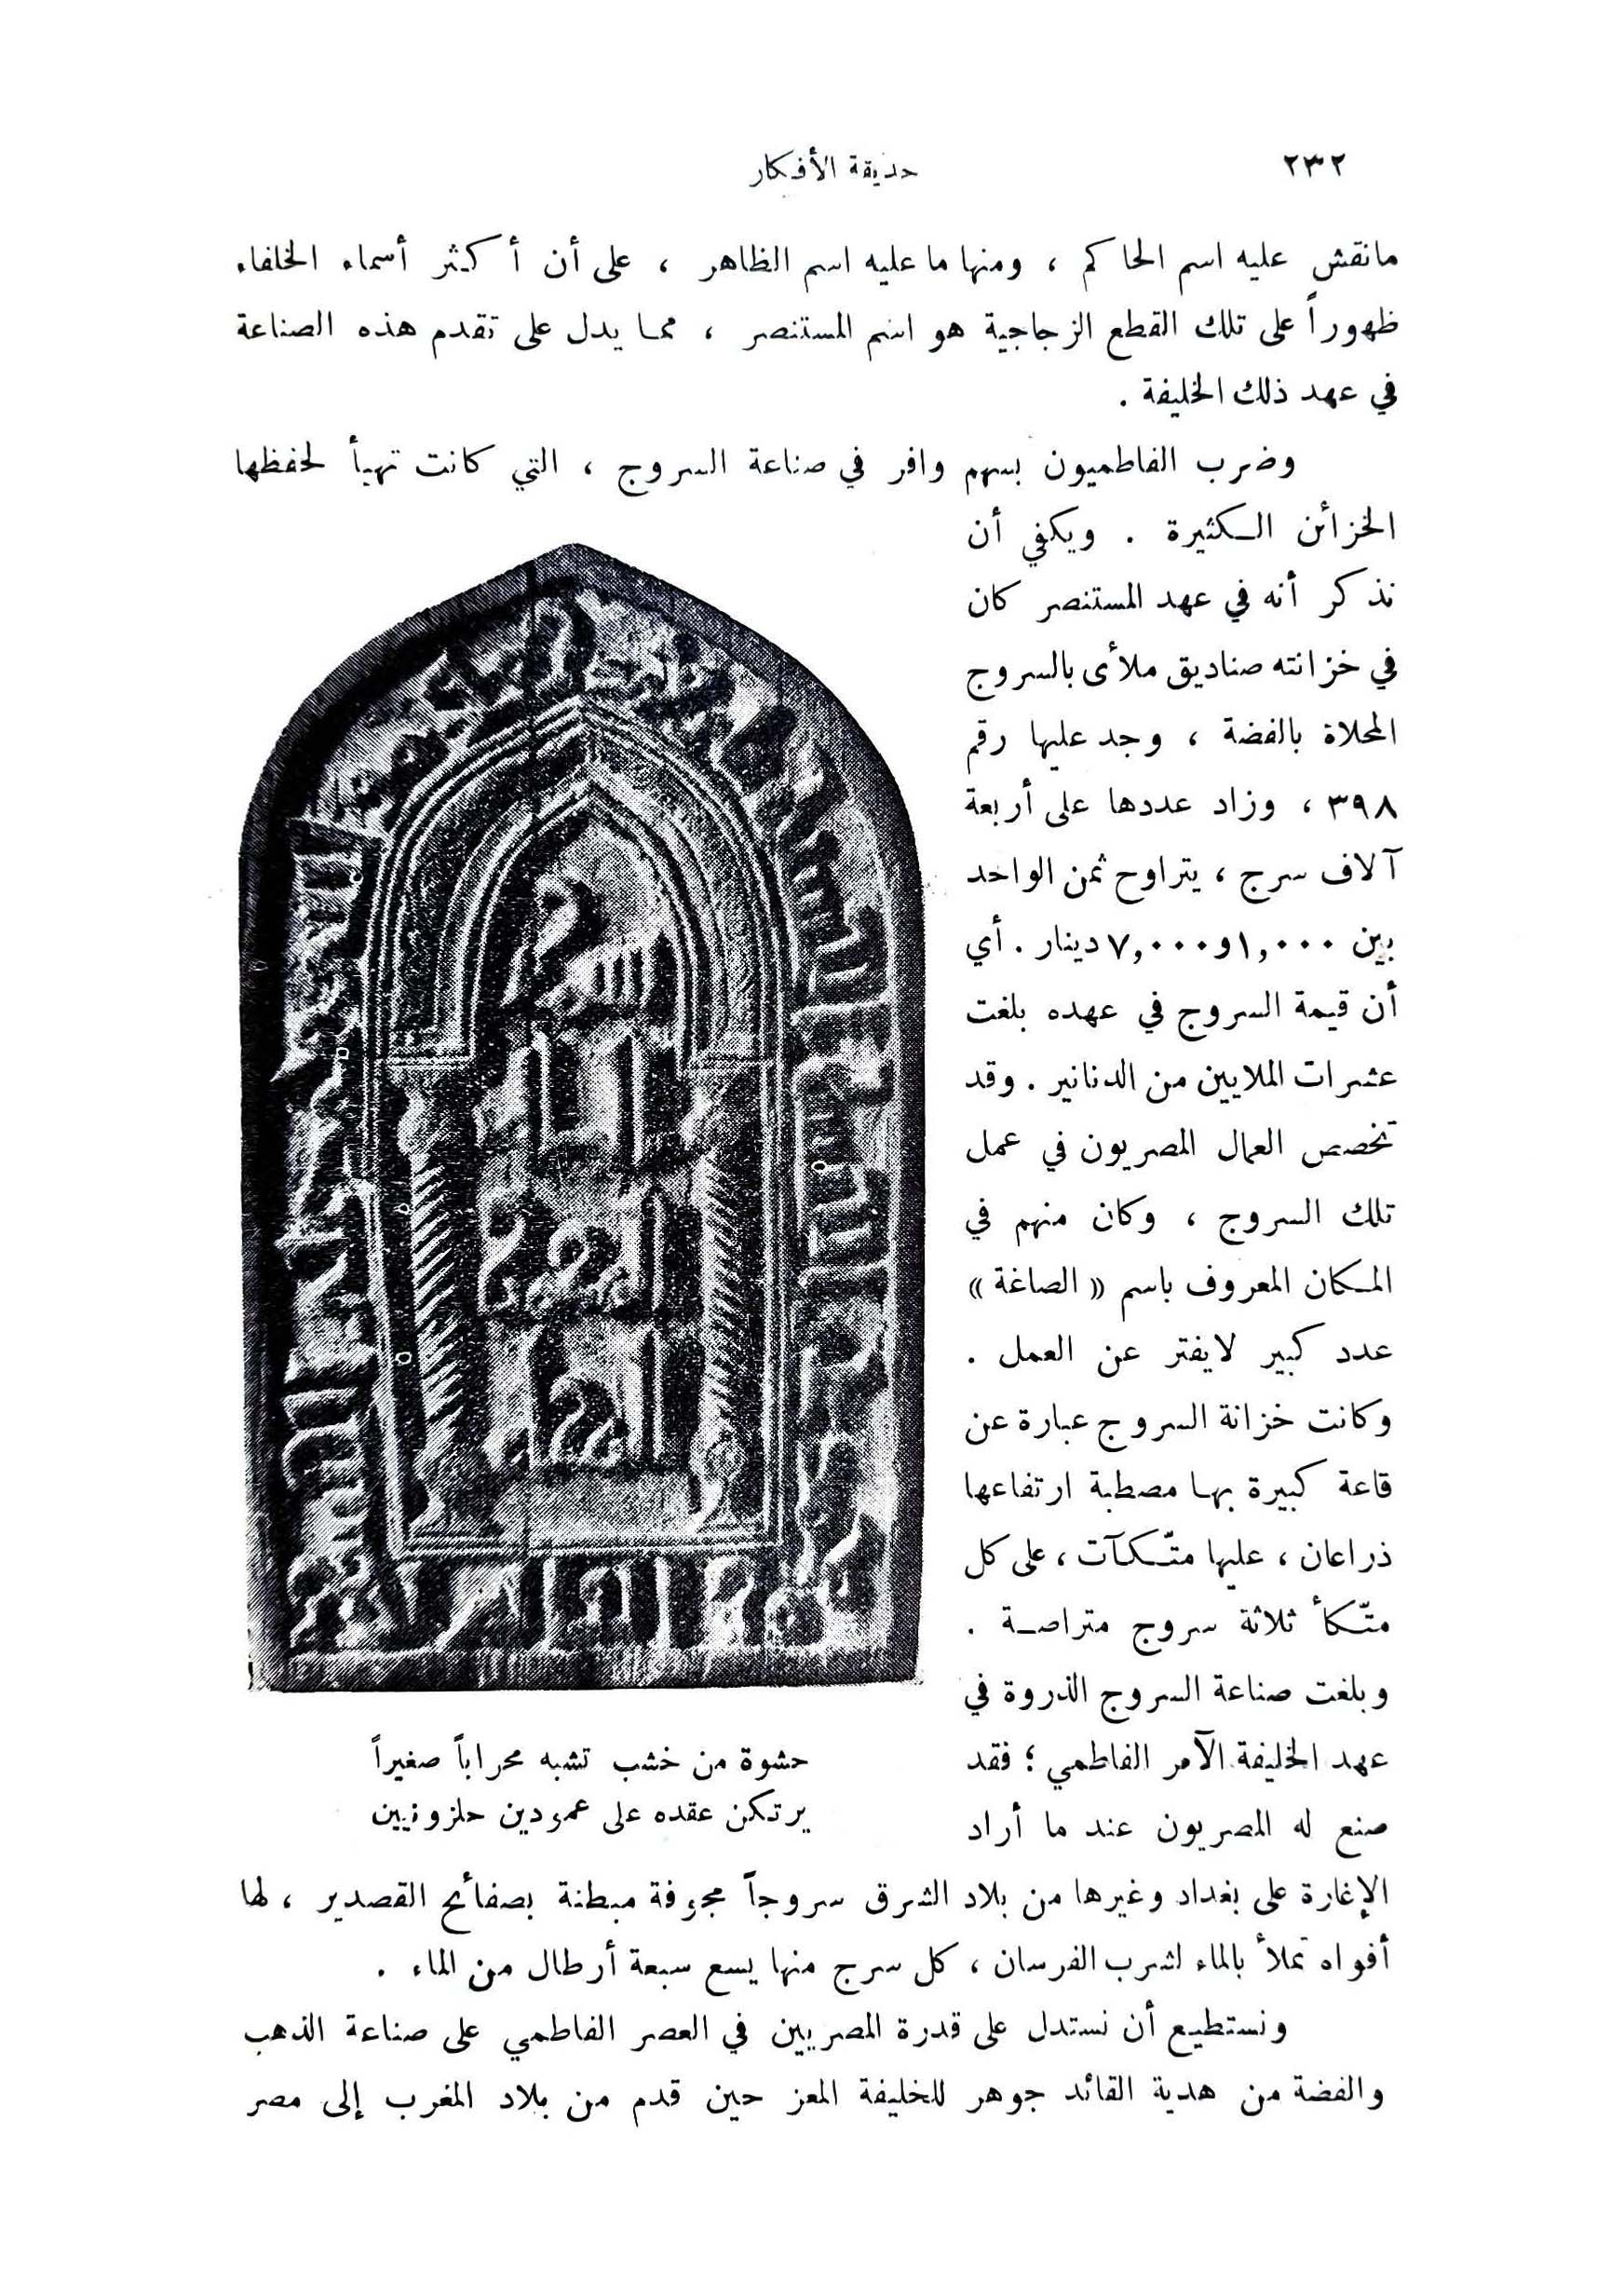 ٢٣٢
حديقة الأفكار
مانقش عليه اسم الحاكم ، ومنها ما عليه اسم الظاهر ، على أن أكثر أسماء الخلفاء
ظهوراً على تلك القطع الزجاجية هو اسم المستنصر ، مما يدل على تقدم هذه الصناعة
في عهد ذلك الخليفة .
وضرب الفاطميون بسهم وافر في صناعة السروج ، التي كانت تهيأ لحفظها
الخزائن الكثيرة . ويكفي أن
نذكر أنه في عهد المستنصر كان
في خزانته صناديق ملأى بالسروج
المحلاة بالفضة ، وجد عليها رقم
٣٩٨ ، وزاد عددها على أربعة
آلاف سرج ، يتراوح ثمن الواحد
بين ١,٠٠٠ و٧,٠٠٠ دينار . أي
أن قيمة السروج في عهده بلغت
عشرات الملايين من الدنانير . وقد
تخصص العمال المصريون في عمل
تلك السروج ، وكان منهم في
المكان المعروف باسم « الصاغة »
عدد كبير لايفتر عن العمل .
وكانت خزانة السروج عبارة عن
قاعة كبيرة بها مصطبة ارتفاعها
ذراعان ، عليها متّكآت ، على كل
متّكأ ثلاثة سروج متراصة .
وبلغت صناعة السروج الذروة في
عهد الخليفة الآمر الفاطمي ؛ فقد
صنع له المصريون عند ما أراد
الإغارة على بغداد وغيرها من بلاد الشرق سروجاً مجوفة مبطنة بصفائح القصدير ، لها
أفواه تملأ بالماء لشرب الفرسان ، كل سرج منها يسع سبعة أرطال من الماء .
ونستطيع أن نستدل على قدرة المصريين في العصر الفاطمي على صناعة الذهب
والفضة من هدية القائد جوهر للخليفة المعز حين قدم من بلاد المغرب إلى مصر
حشوة من خشب تشبه محراباً صغيراً
يرتكن عقده على عمودين حلزونيين